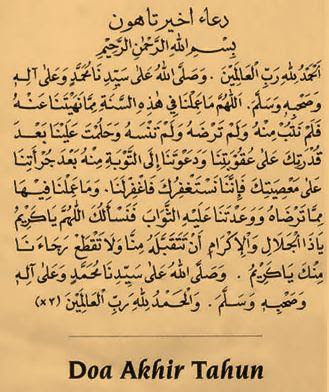 دعاء اخير تاهون
بِسْمِ اللهِ الرَّحْمٰنِ الرَّحِيْمِ
اَلْحَمْدُ لِلّٰهِ رَبِّ الْعَالَمِيْنَ . وَصَلَّى اللهُ عَلَى سَيِّدِنَا مُحَمَّدٍ وَعَلَى آلِهِ
وَصَحْبِهِ وَسَلَّمَ . اَللّٰهُمَّ مَا عَمِلْنَا فِي هٰذِهِ السَّنَةِ مِمَّا نَهَيْتَنَا عَنْهُ
فَلَمْ نَتُبْ مِنْهُ وَلَمْ تَرْضَهُ وَلَمْ تَنْسَهُ وَحَلُمْتَ عَلَيْنَا بَعْدَ
قُدْرَتِكَ عَلَى عُقُوْبَتِنَا وَدَعَوْتَنَا إِلَى التَّوْبَةِ مِنْهُ بَعْدَ جُرْأَتِنَا
عَلَى مَعْصِيَتِكَ فَإِنَّا نَسْتَغْفِرُكَ فَاغْفِرْ لَنَا . وَمَا عَمِلْنَا فِيْهَا
مِمَّا تَرْضَاهُ وَوَعَدْتَنَا عَلَيْهِ الثَّوَابَ فَنَسْأَلُكَ اللّٰهُمَّ يَا كَرِيْمُ
يَا ذَا الْجَلَالِ وَالْإِكْرَامِ أَنْ تَتَقَبَّلَهُ مِنَّا وَلَا تَقْطَعْ رَجَاءَنَا
مِنْكَ يَا كَرِيْمُ . وَصَلَّى اللهُ عَلَى سَيِّدِنَا مُحَمَّدٍ وَعَلَى آلِهِ
وَصَحْبِهِ وَسَلَّمَ . وَالْحَمْدُ لِلّٰهِ رَبِّ الْعَالَمِيْنَ (٣×)
Doa Akhir Tahun